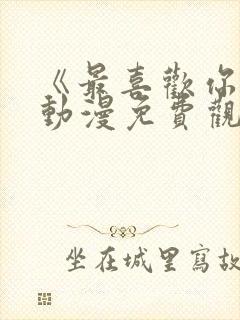 《最喜歡你
動漫免費觀
坐在城里寫故